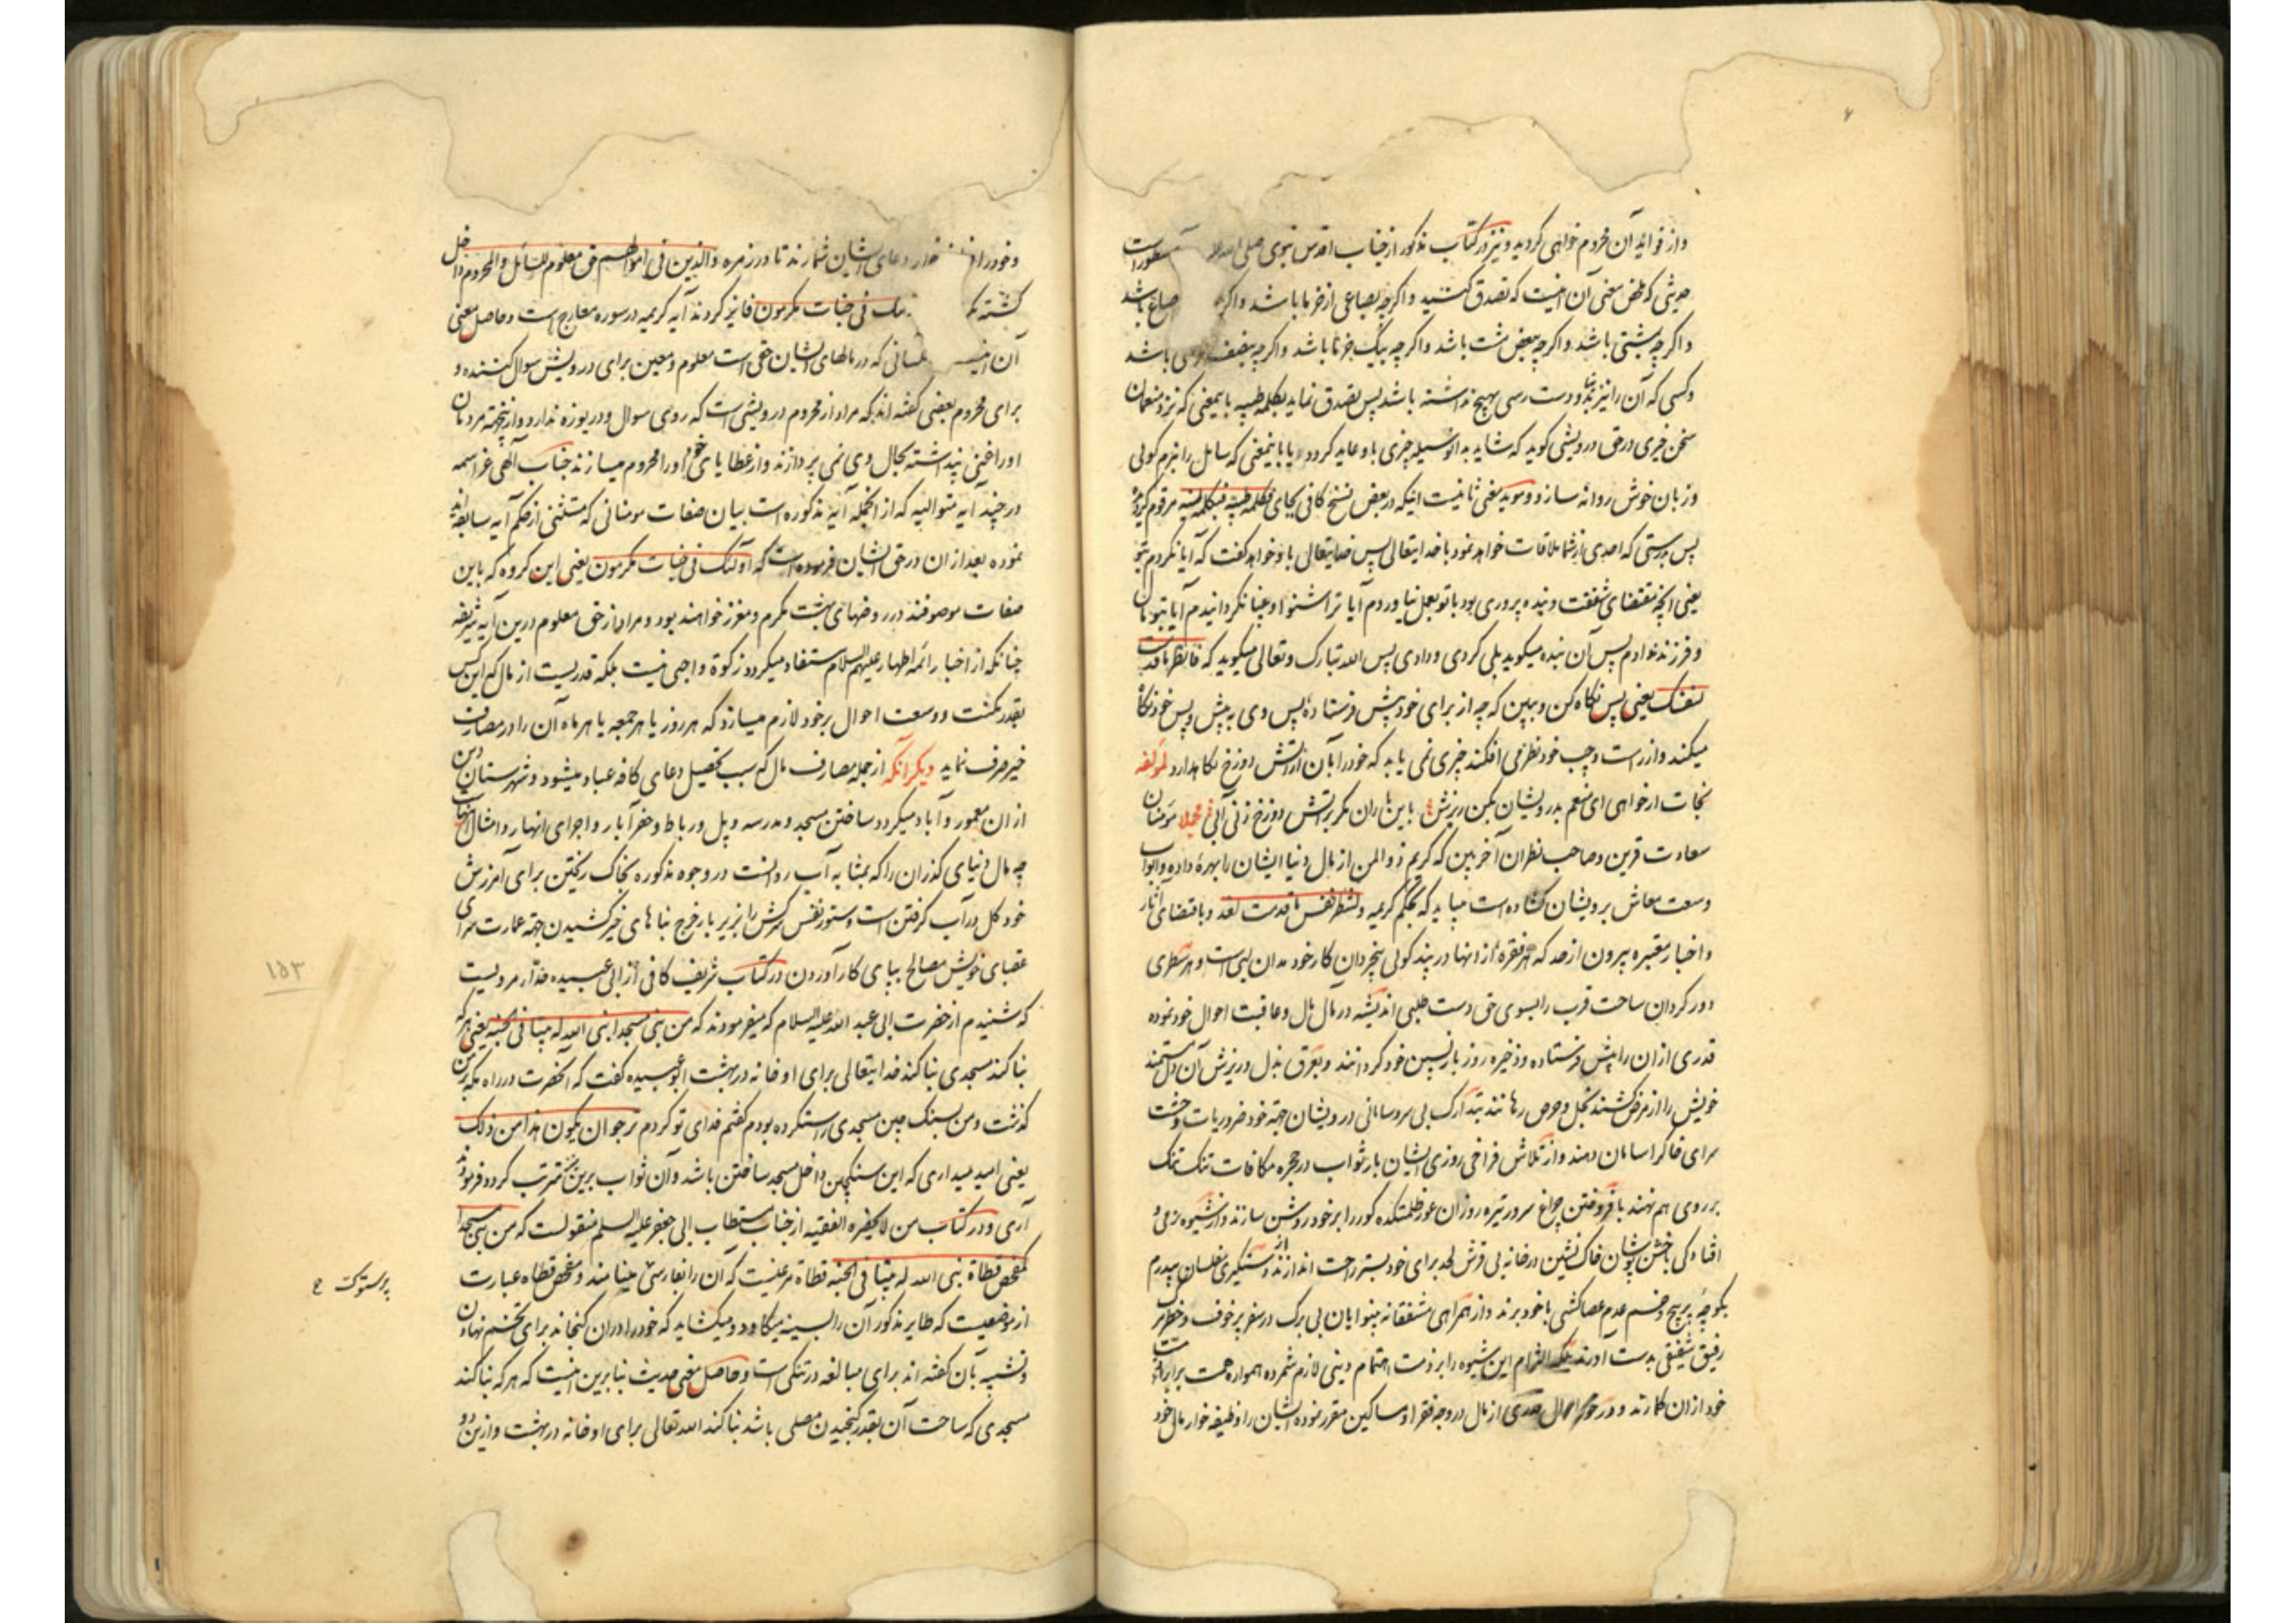 و از فواید آن محروم خواهی کردید و نیز در کتاب مذکور از جناب اقدس نبوی صلی الله علیه مسطور است
حدیثی که ملخص معنی آن اینست که تصدق کنید و اکرچه بصاعی از خرما باشد و اکر صاع باشد
و اکرچه بمشتی باشد و اکرچه ببعض مشت باشد و اکرچه بیک خرما باشد و اکرچه بنصف باشد
و کسی که آن را نیز نیابد و دست رسی بهیچ نداشته باشد پس تصدق نماید بکلمه طیبه باینمعنی که نزد منعمان
سخن خیری در حق درویشی کوید که شاید به آن وسیله چیزی باو عاید کردد و یا باینمعنی که سایل را بنرم کولی
و زبان خوش روانه سازد و موید معنی ثانیست اینکه در بعض نسخ کافی بجای فبکلمة طیبة فبکلمة لینة مرقوم کردیده
پس بدرستی که احدی از شما ملاقات خواهد نمود با خدایتعالی پس خدایتعالی باو خواهد کفت که آیا نکردم بتو
یعنی آنچه مقتضای شفقت و بنده پروری بود با تو بعمل نیاوردم آیا ترا شنوا و بینا نکردانیدم آیا بتو مال
و فرزند ندادم پس آن بنده میکوید بلی کردی و دادی پس الله تبارک و تعالی میکوید که فانظر ما قدمت
لنفسک یعنی پس نکاه کن و ببین که چه از برای خود پیش فرستاده پس وی به پیش و پس خود نکاه
میکند و از راست و چپ خود نظر می افکند چیزی نمی یابد که خود را بآن از آتش دوزخ نکاهدارد لمؤلفه
نجات ار خواهی ای منعم بدرویشان بکن ریزش باین باران مکر بر آتش دوزخ زنی آبی مجملا مؤمنان
سعادت قرین و صاحب نظران آخر بین که کریم ذو المنن از مال دنیا ایشان را بهره داده و ابواب
وسعت معاش بر رویشان کشاده است میباید که بحکم کریمه ولتنظر نفس ما قدمت لغد و باقتضای آثار
و اخبار معتبره بیرون از حد که هر فقره از انها در پند کولی بیخردان کار خود مدان لیی است و هر سطری
دور کردان ساحت قرب را بسوی حق دست طلبی اندیشه در مآل مال و عاقبت احوال خود نموده
قدری از ان را پیش فرستاده و ذخیره روز بازپسین خود کردانند و بعرق بذل و ریزش آن دل مستمند
خویش را از مرض کشنده بخل و حرص رهانند بتدارک بی سر و سامانی درویشان جهة خود ضروریات وحشت
سرای خاک را سامان دهند و از تلاش فراخی روزی ایشان بار ثواب در حجره مکافات تنک تنک
بر روی هم نهند بافروختن چراغ سرور تیره روزان عور ظلمتکده کور را بر خود روشن سازند و از شیوه رمی و
افتادکی با خشن پوشان خاک نشین در خانه بی فرش لحد برای خود بستر راحت اندازند و از دستکیری مفلسان بیدرم
بکوچه پر پیچ و خم عدم عصا کشی با خود برند و از همراهی مشفقانه بینوایان بی برک در سفر پر خوف و خطر مرک
رفیق شفیقی بدست آورند بلکه التزام این شیوه را بر ذمت اهتمام دینی لازم شمرده همواره همت بر ایراد
خود از ان کمارند و در خور احوال قدری از مال در وجه فقرا و مساکین مقرر نموده ایشان را وظیفه خوار مال خود
و خود را وظیفه خوار دعای ایشان شمارند تا در زمره والذین فی اموالهم حق معلوم للسائل والمحروم داخل
کشته فی جنات مکرمون فایز کردند آیه کریمه در سوره معارج است و حاصل معنی
آن کسانی که در مالهای ایشان حقی است معلوم و معین برای درویش سوال کننده و
برای محروم بعضی کفته اند که مراد از محروم درویشی است که روی سوال و دریوزه ندارد و از نجهته مردمان
او را غنی پنداشته بحال وی نمی پردازند و از عطایای خود او را محروم میسازند جناب آلهی عز اسمه
در چند آیه متوالیه که از انجمله آیه مذکوره است بیان صفات مومنانی که مستثنی از حکم آیه سابقه اند
نموده بعد از ان در حق ایشان فرموده است که اولئک فی جنات مکرمون یعنی این کروه که باین
صفات موصوفند در روضهای بهشت مکرم و معزز خواهند بود و مراد از حق معلوم درین آیه شریفه
چنانکه از اخبار ائمه اطهار علیهم السلام مستفاد میکردد زکوة واجبی نیست بلکه قدریست از مال که این کس
بقدر مکنت و وسعت احوال بر خود لازم میسازد که هر روز یا هر جمعه یا هر ماه آن را در مصارف
خیر صرف نماید دیکر آنکه از جمله مصارف مال که سبب تحصیل دعای کافه عباد میشود و شهرستان دین
از ان معمور و آباد میکردد ساختن مسجد و مدرسه و پل و رباط و حفر آبار و اجرای انهار و امثال آنهاست
چه مال دنیای کذران را که بمثابه آب روانست در وجوه مذکوره بخاک ریختن برای آمرزش
خود کل در آب کرفتن است و ستور نفس سرکش را بزیر بار خرج بناهای خیر کشیدن جهة عمارت سرای
عقبای خویش مصالح بپای کار آوردن در کتاب شریف کافی از ابی عبیده حذا مرویست
که شنیدم از حضرت ابی عبد الله علیه السلام که میفرمودند که من بنی مسجدا بنی الله له بیتا فی الجنة یعنی هر که
بنا کند مسجدی بنا کند خدایتعالی برای او خانه در بهشت ابو عبیده کفت که آنحضرت در راه مکه بر من
کذشت و من بسنک چین مسجدی راست کرده بودم کفتم فدای تو کردم نرجو ان یکون هذا من ذلک
یعنی امید میداری که این سنکچین داخل مسجد ساختن باشد و آن ثواب برین مترتب کردد فرمود
آری و در کتاب من لا یحضره الفقیه از جناب مستطاب ابی جعفر علیه السلم منقولست که من بنی مسجدا
کمفحص قطاة بنی الله له بیتا فی الجنة قطاة مرغیست که آن را بفارسی مینامند و مفحص قطاة عبارت
از موضعیست که طایر مذکور آن را بسینه میکاود و میکشاید که خود را در ان کنجاند برای تخم نهادن
و تشبیه بآن کفته اند برای مبالغه در تنکی است و حاصل معنی حدیث بنا برین اینست که هر که بنا کند
مسجدی که ساحت آن بقدر کنجیدن مصلی باشد بنا کند الله تعالی برای او خانه در بهشت و ازین دو
۱۵۳
پرستوک